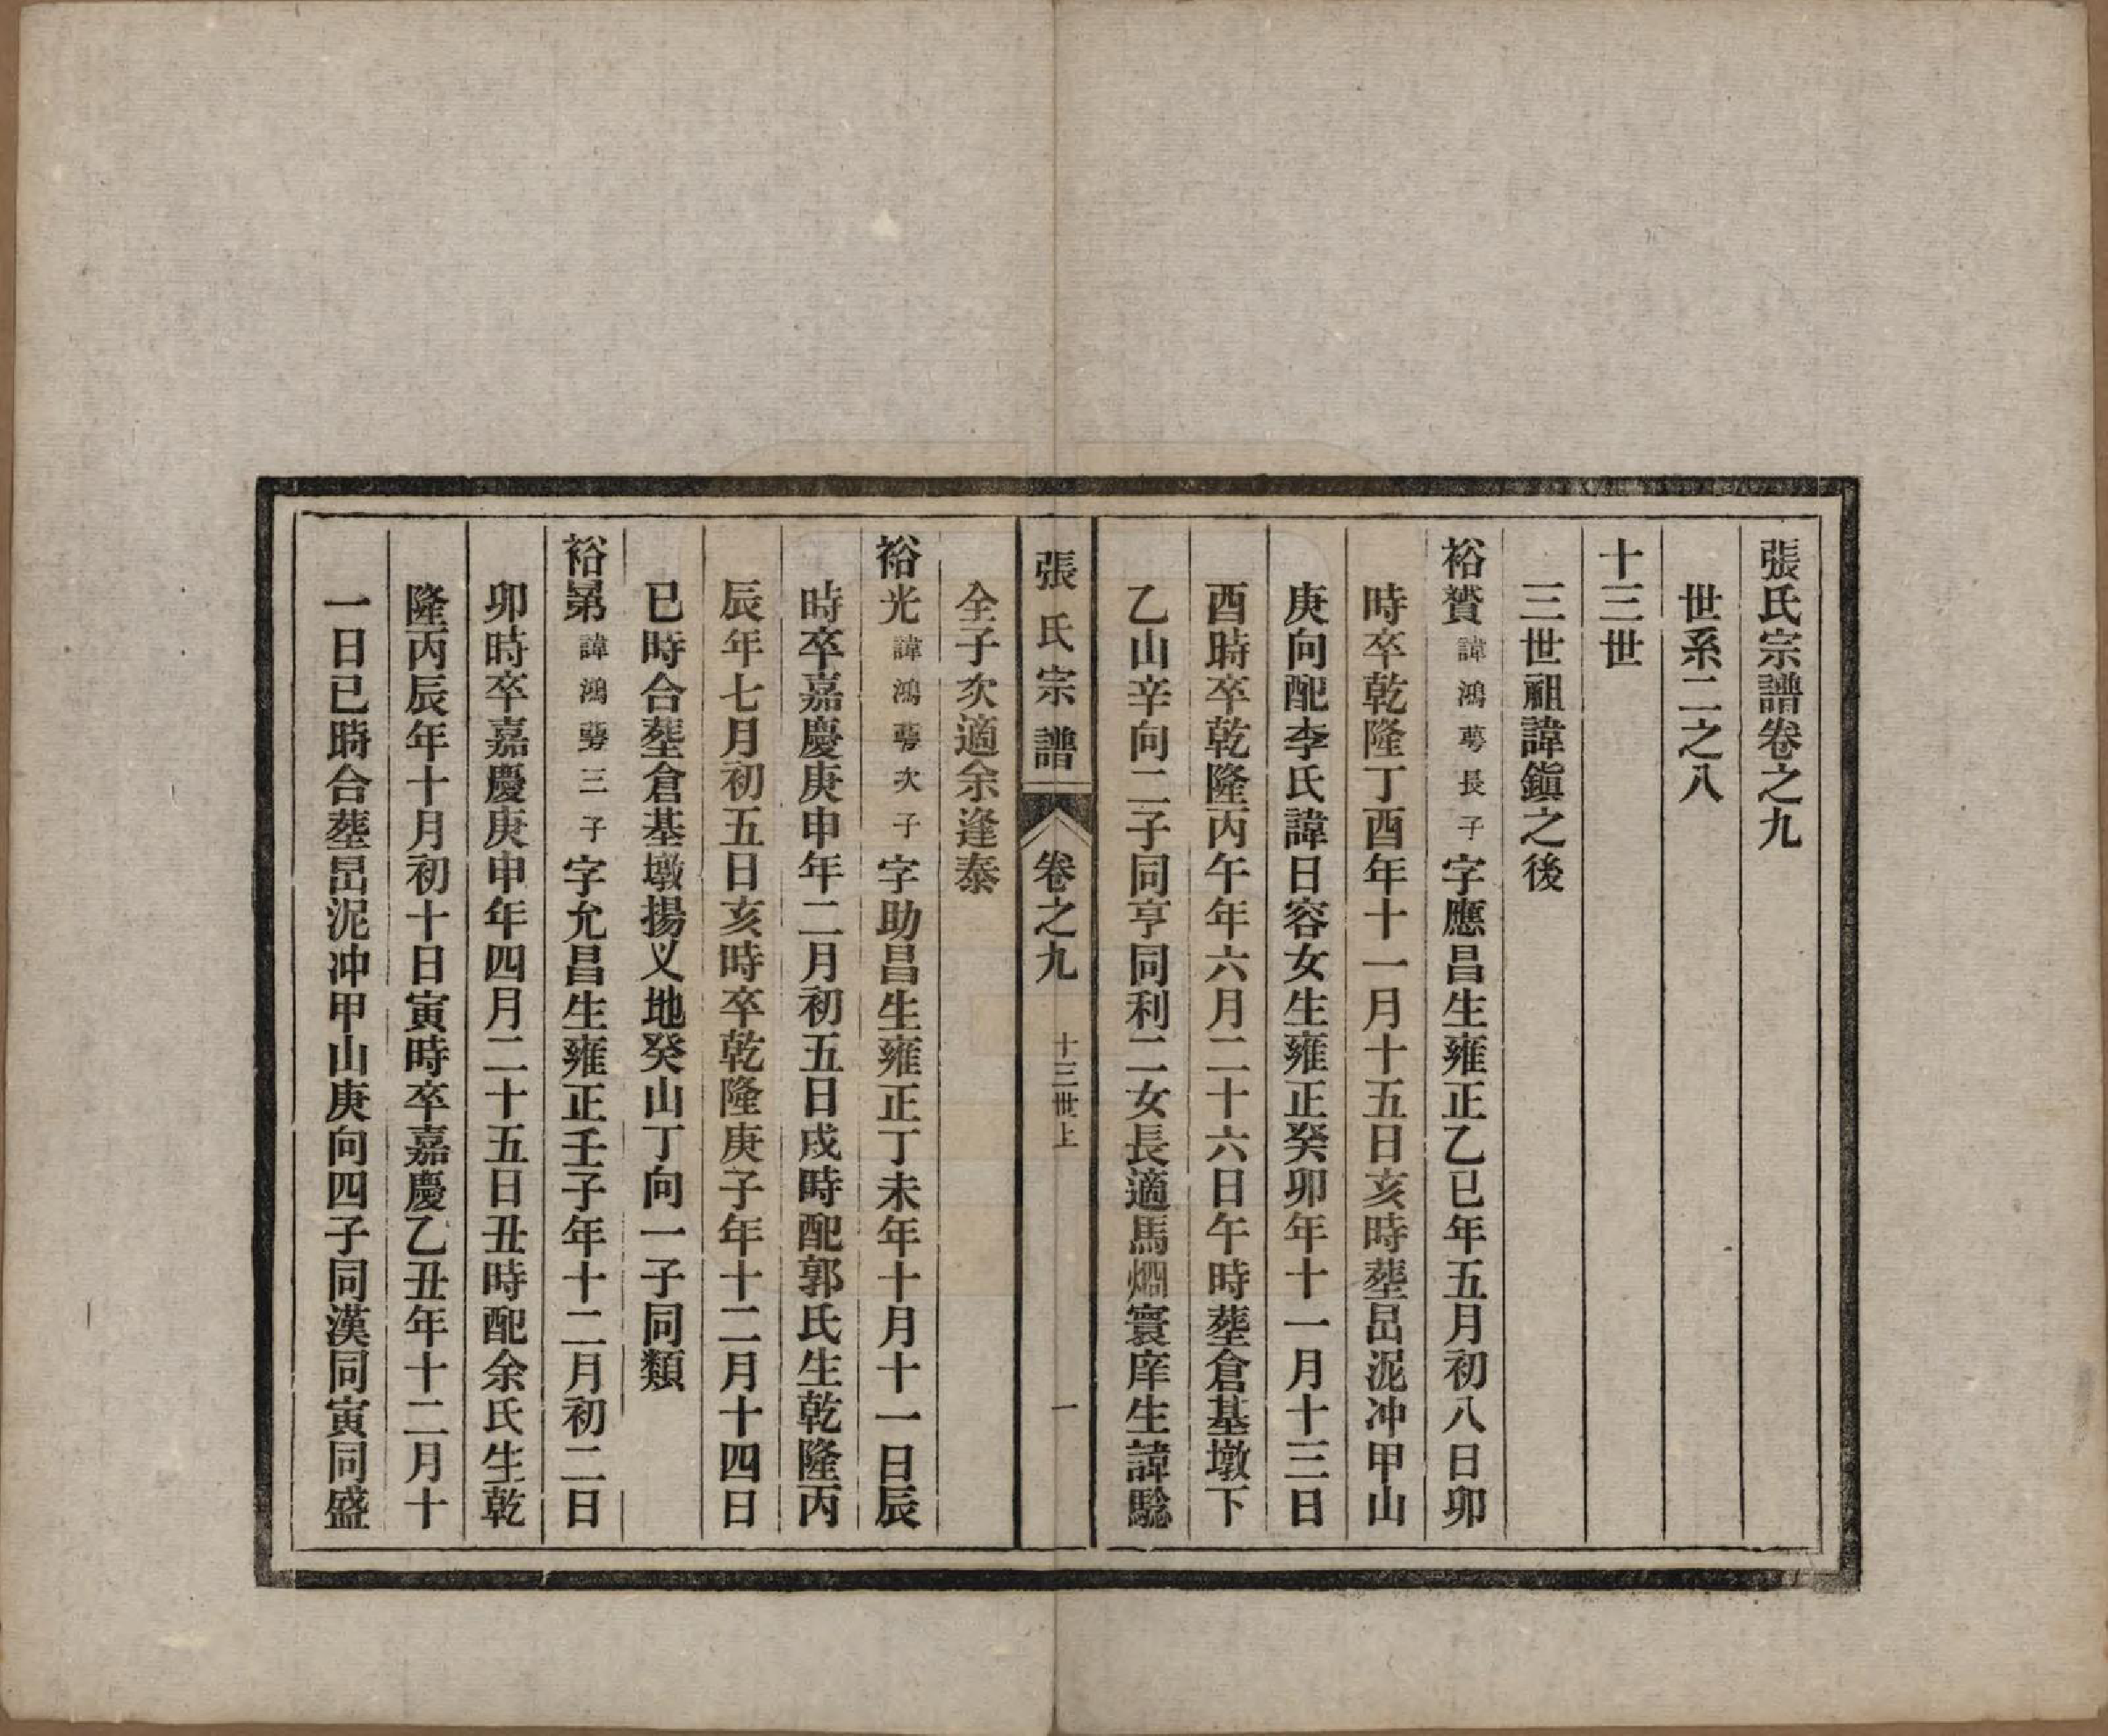 張氏宗譜卷之九
世系二之八
十三世
三世祖諱鎭之後
裕贇諱鴻蕚長子字應昌生雍正乙巳年五月初八日卯
時卒乾隆丁酉年十一月十五日亥時塟畾泥冲甲山
庚向配李氏諱日容女生雍正癸卯年十一月十三日
酉時卒乾隆丙午年六月二十六日午時塟倉基墩下
乙山辛向二子同亨同利二女長適馬烱寰庠生諱騐
張氏宗譜 卷之九 十三世上 一
全子次適余逢泰
裕光諱鴻蕚次子字助昌生雍正丁未年十月十一日辰
時卒嘉慶庚申年二月初五日戌時配郭氏生乾隆丙
辰年七月初五日亥時卒乾隆庚子年十二月十四日
巳時合塟倉基墩揚义地癸山丁向一子同類
裕諱鴻蕚三子字允昌生雍正壬子年十二月初二日
卯時卒嘉慶庚申年四月二十五日丑時配余氏生乾
隆丙辰年十月初十日寅時卒嘉慶乙丑年十二月十
一日巳時合塟畾泥冲甲山庚向四子同漢同寅同盛